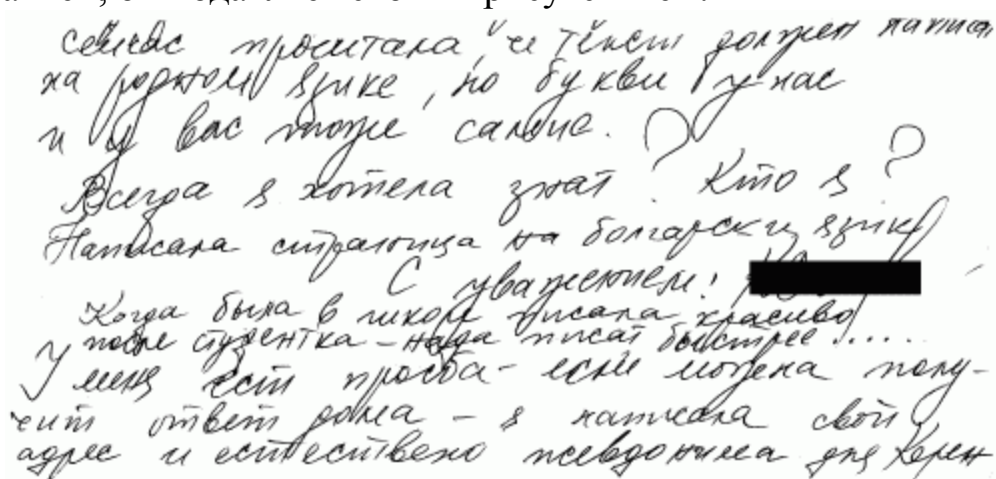 сейчас прочитала, че текст должен написан
на родном язике, но букви у нас
и у вас тоже самые.
Всегда я хотела знат? Кто я?
Написала страница на болгарски язике
С уважением!
Когда была в школе писала красиво
после студентка – нада писат быстрее.....
У меня ест просба – если можена полу-
чит ответ дома – я написала свой
адрес и естествено псевдонима для Керен